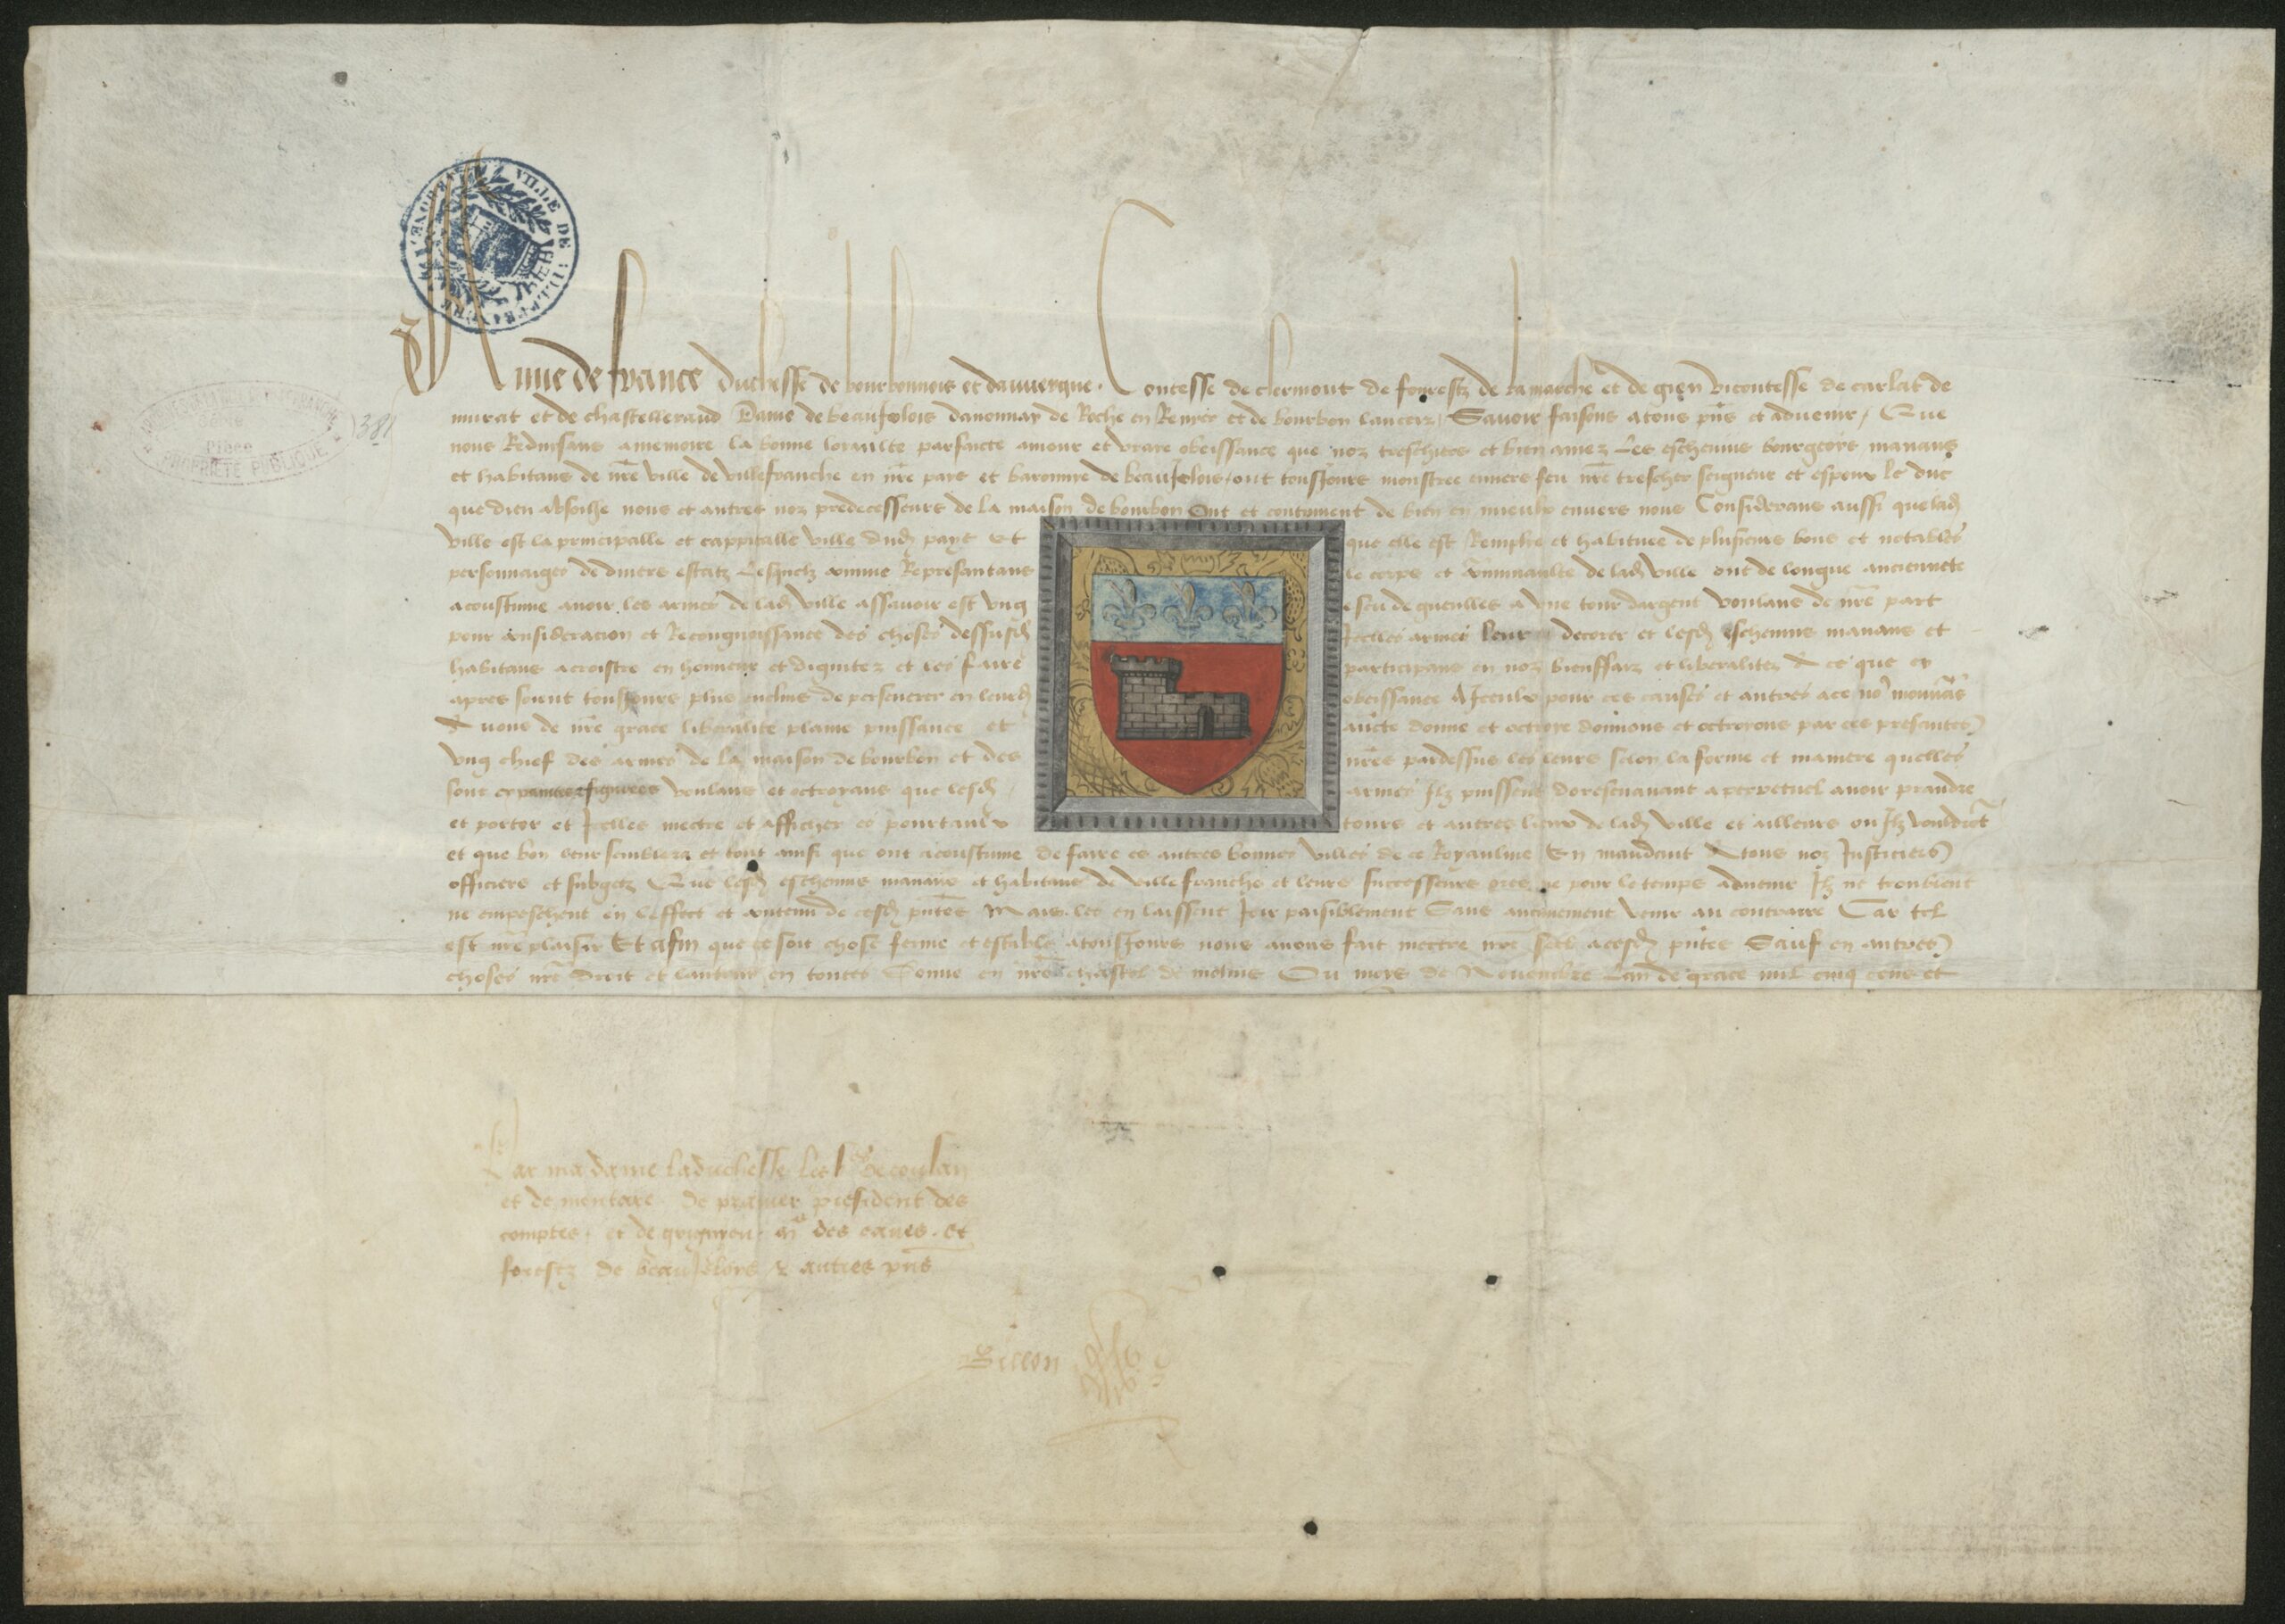 VILLE DE VILLEFRANCHE
PROPRIÉTÉ PUBLIQUE
381
Anne de france duchesse de bourbonnois et dauvergne. Contesse de clermont de fourestz de la marche et de gien vicontesse de carlat de
murat et de chastelleraud Dame de beaujolois danonnay de Roche en Renyer et de bourbon lanceiz, Savoir faisons a tous pñs et advenir, Que
nous Reduisans a memoire la bonne loyaulte parfaicte amour et vraye obeissance que noz treschiers et bien amez Les eschevins bourgeois manans
et habitans de nr̃e ville de villefranche en nr̃e pays et baronnye de beaujolois, ont tousjours monstree envers feu nr̃e trescher seigneur et espoux le duc
que dieu absoille nous et autres noz predecesseurs de la maison de bourbon Ont et continuent de bien en mieulx envers nous Considerans aussi que lad
ville est la principalle et cappitalle ville dud pays Et que elle est Remplie et habituee de plusieurs bons et notables
personnaiges de divers estatz Lesquelz comme Representans le corps et communaulte de lad ville ont de longue anciennete
acoustume avoir les armes de lad ville assavoir est ung escu de gueulles a une tour dargent voulans de nr̃e part
pour consideracion et Recongnoissance des choses dessusd Icelles armes leur decorer et lesd eschevins manans et
habitans acroistre en honneur et dignitez et les faire participans en noz bienffaiz et liberalitez A ce que cy
apres soient tousjours plus enclins de perseverer en leurd obeissance A Iceulx pour ces causes et autres a ce no9 mouvãs
Avons de nr̃e grace liberalite plaine puissance et aucte donne et octroye donnons et octroyons par ces presentes
ung chief des armes de la maison de bourbon et des nr̃es pardessus les leurs selon la forme et maniere quelles
sont cy painctes figurees voulans et octroyans que lesd armes Ilz puissent doresenavant a perpetuel avoir prandre
et porter et Icelles mectre et afficher es pourtaulx tours et autres lieux de lad ville et ailleurs ou Ilz vouldront
et que bon leur semblera et tout ainsi que ont acoustume de faire es autres bonnes villes de ce Royaulme En mandant A tous noz Justiciers
officiers et subgetz Que lesd eschevins manans et habitans de villefranche et leurs successeurs pour le temps advenir Ilz ne troublent
ne empeschent en leffect et contenu de cesd pñtes Mais les en laissent Joir paisiblement Sans aucunement venir au contraire Car tel
est nr̃e plaisir Et afin que ce soit chose ferme et estable a tousjours nous avons fait mectre nr̃e seel a cesd pñtes Sauf en autres
choses nr̃e droit et lautruy en toutes Donne en nr̃e chastel de molins Ou moys de Novembre Lan de grace mil cinq cens et
Par madame la duchesse
et de mentare president des
comptes, et de des eaues et
forestz de beaujolois & autres pñs
Billon